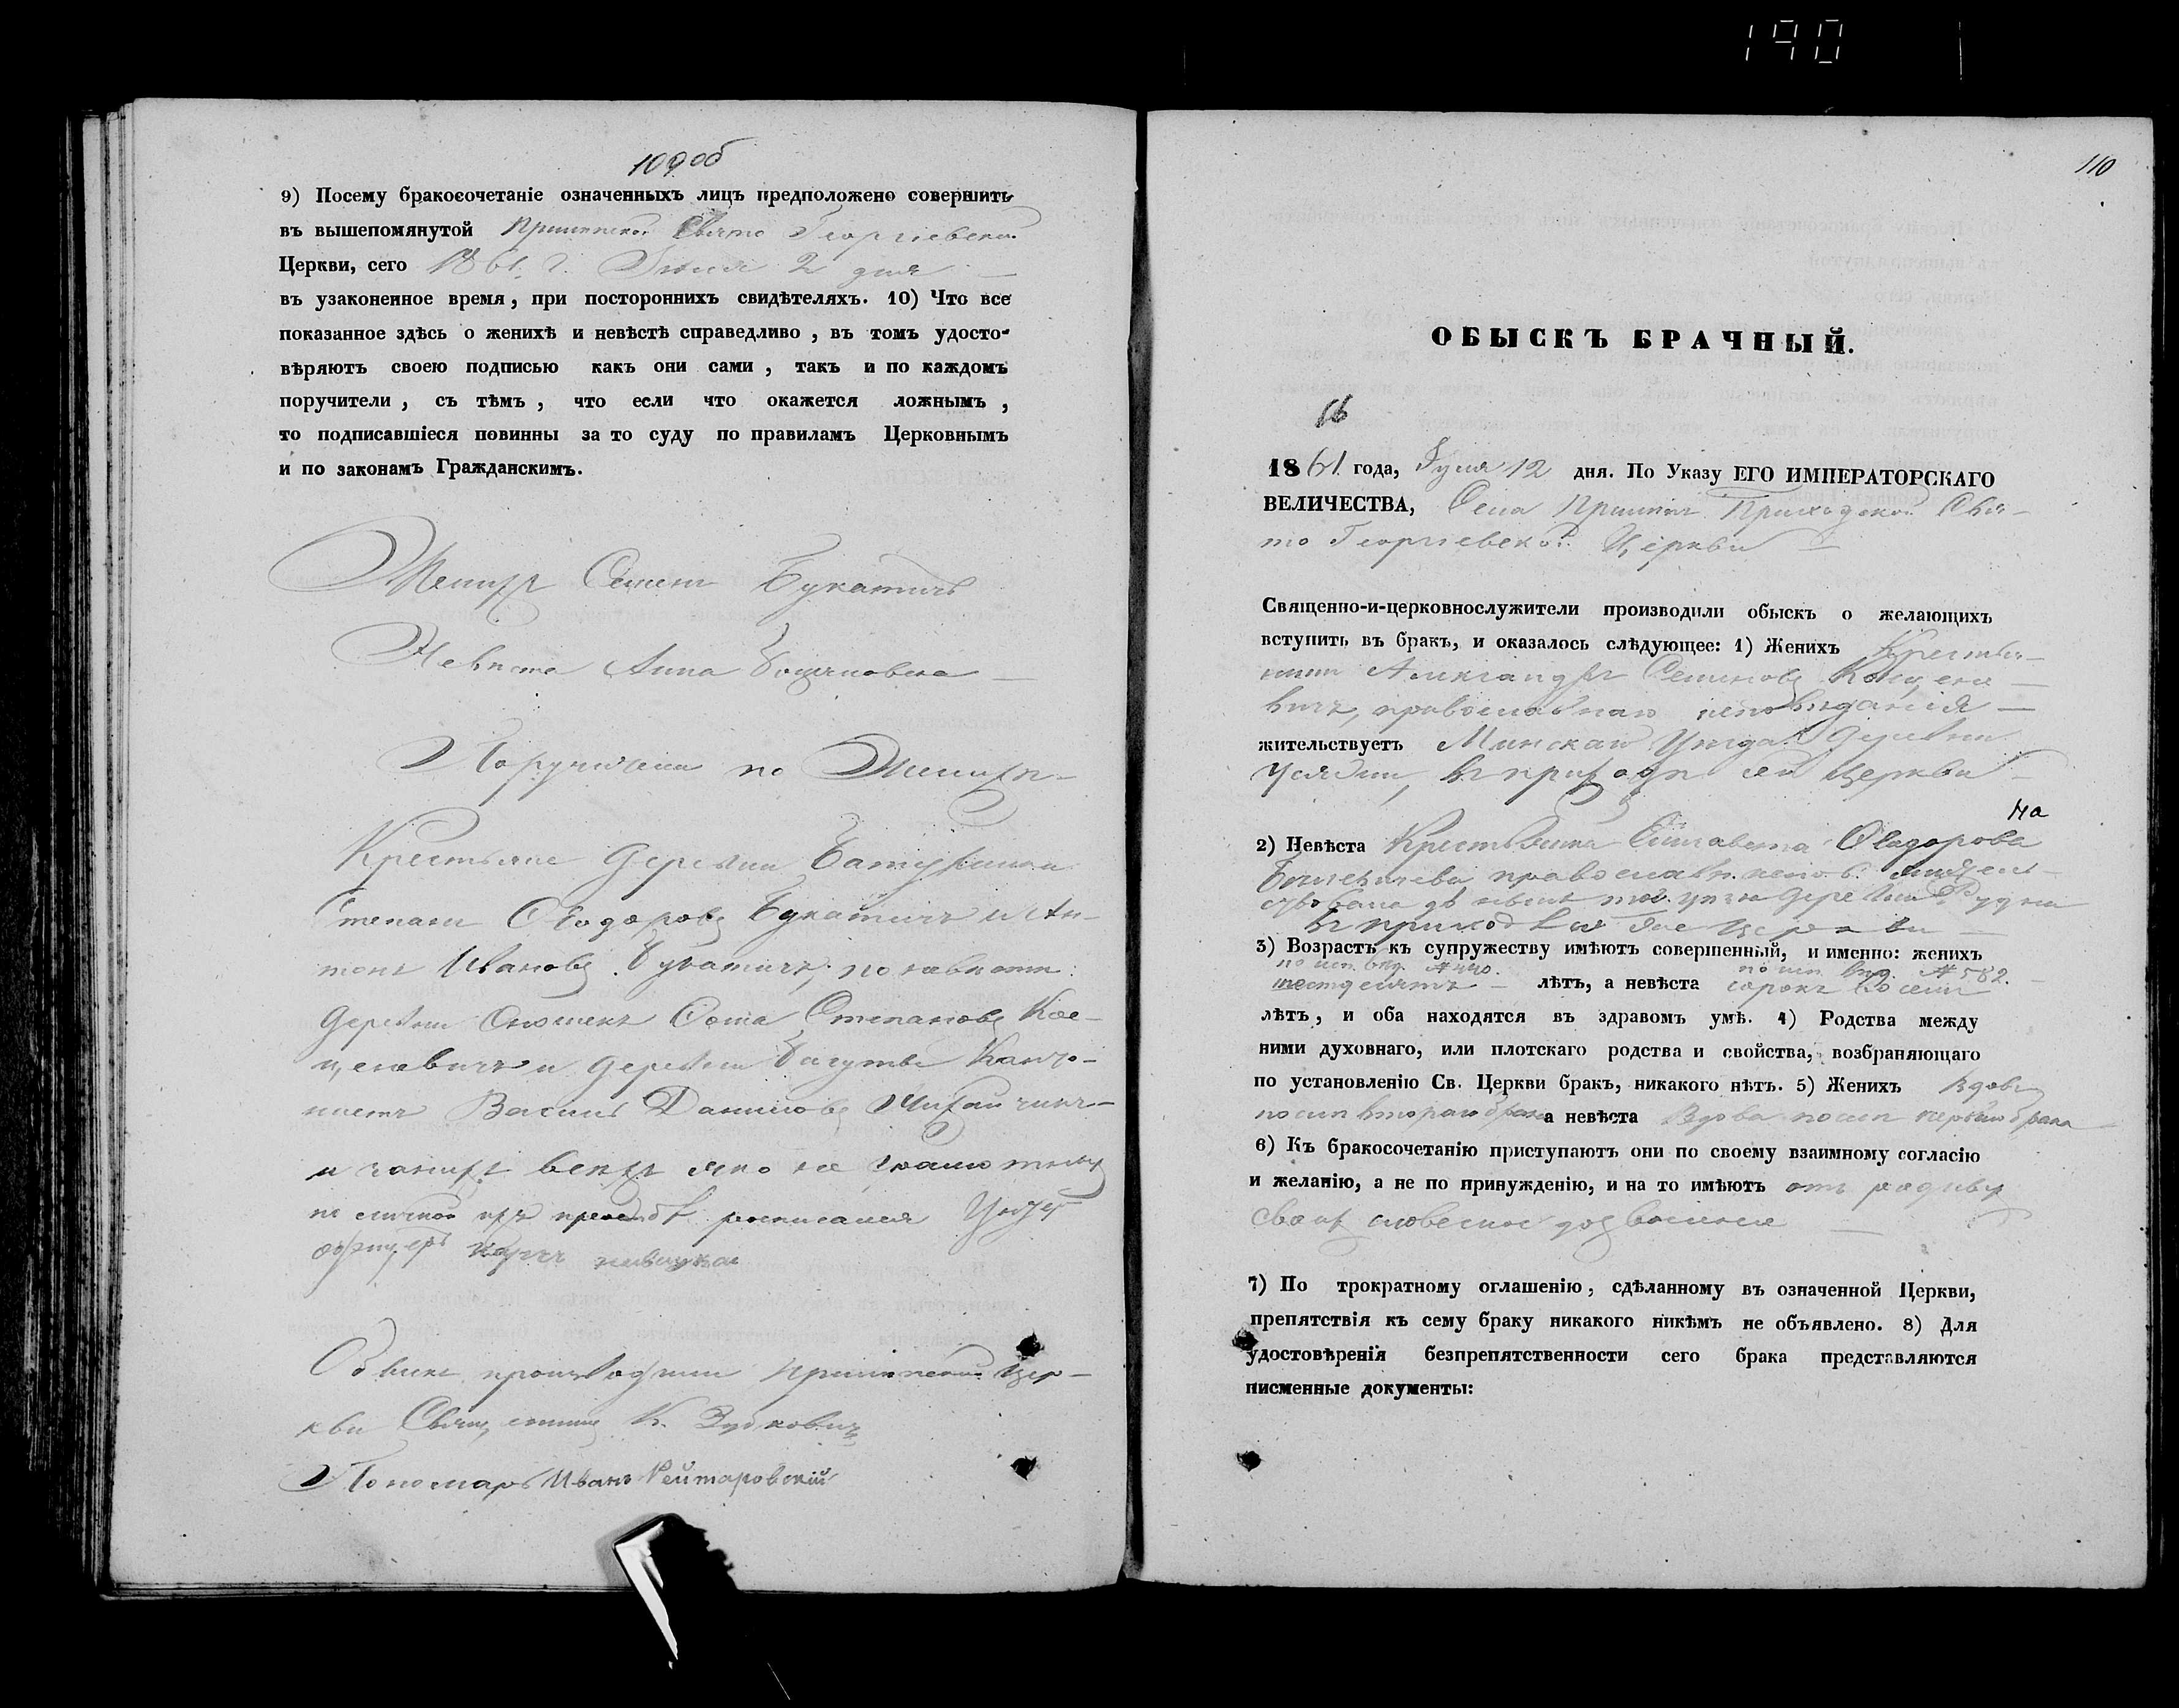 190
109 об
9) Посему бракосочетаніе означенныхъ лицъ предположено совершить
въ вышепомянутой Свято Георгіевской
Церкви, сего 1861 г. 2 дня
въ узаконенное время, при постороннихъ свидѣтеляхъ. 10) Что все
показанное здѣсь о женихѣ и невѣстѣ справедливо, въ томъ удосто-
вѣряютъ своею подписью какъ они сами, такъ и по каждомъ
поручители, съ тѣмъ, что если что окажется ложнымъ,
то подписавшіеся повинны за то суду по правиламъ Церковнымъ
и по законамъ Гражданскимъ.
Женихъ Семенъ Букатичъ
Невѣста Анна
Поручители по Женихѣ
Крестьяне деревни
Степанъ Ѳеодоровъ Букатичъ и Ан-
тонъ Ивановъ Букатичъ, по невѣстѣ
деревни Ѳома Степановъ Кос-
цевичъ и деревни
Василь Даниловъ
и за нихъ всѣхъ яко не грамотныхъ
по личной ихъ прозьбѣ росписался Унтеръ
офицеръ
Обыскъ производили Церк-
кви Священникъ К.
Пономарь Иванъ Рейтаровскій
110
ОБЫСКЪ БРАЧНЫЙ.
16
1861 года, 12 дня. По Указу ЕГО ИМПЕРАТОРСКАГО
ВЕЛИЧЕСТВА, Села Приходской Свя-
то Георгіевской Церкви
Священно-и-церковнослужители производили обыскъ о желающихъ
вступить въ бракъ, и оказалось слѣдующее: 1) Женихъ Крестья-
нинъ Александръ Семеновъ
вичъ, православнаго исповѣданія
жительствуетъ Минскаго Уѣзда деревни
въ приходѣ сей церкви
на
2) Невѣста Крестьянка Елисавета Ѳеодорова
православн. испов.
деревни Рудни
въ приходѣ церкви
3) Возрастъ къ супружеству имѣютъ совершенный, и именно: женихъ
по исп. вѣд. № по исп. вѣд. № 582.
шестдесятъ лѣтъ, а невѣста сорокъ восемь
лѣтъ, и оба находятся въ здравомъ умѣ. 4) Родства между
ними духовнаго, или плотскаго родства и свойства, возбраняющаго
по установленію Св. Церкви бракъ, никакого нѣтъ. 5) Женихъ Вдовъ
послѣ втораго брака а невѣста Вдова послѣ перваго брака
6) Къ бракосочетанію приступаютъ они по своему взаимному согласію
и желанію, а не по принужденію, и на то имѣютъ отъ
своихъ словесное дозволеніе
7) По трократному оглашенію, сдѣланному въ означенной Церкви,
препятствія къ сему браку никакого никѣмъ не объявлено. 8) Для
удостовѣренія безпрепятственности сего брака представляются
писменные документы: